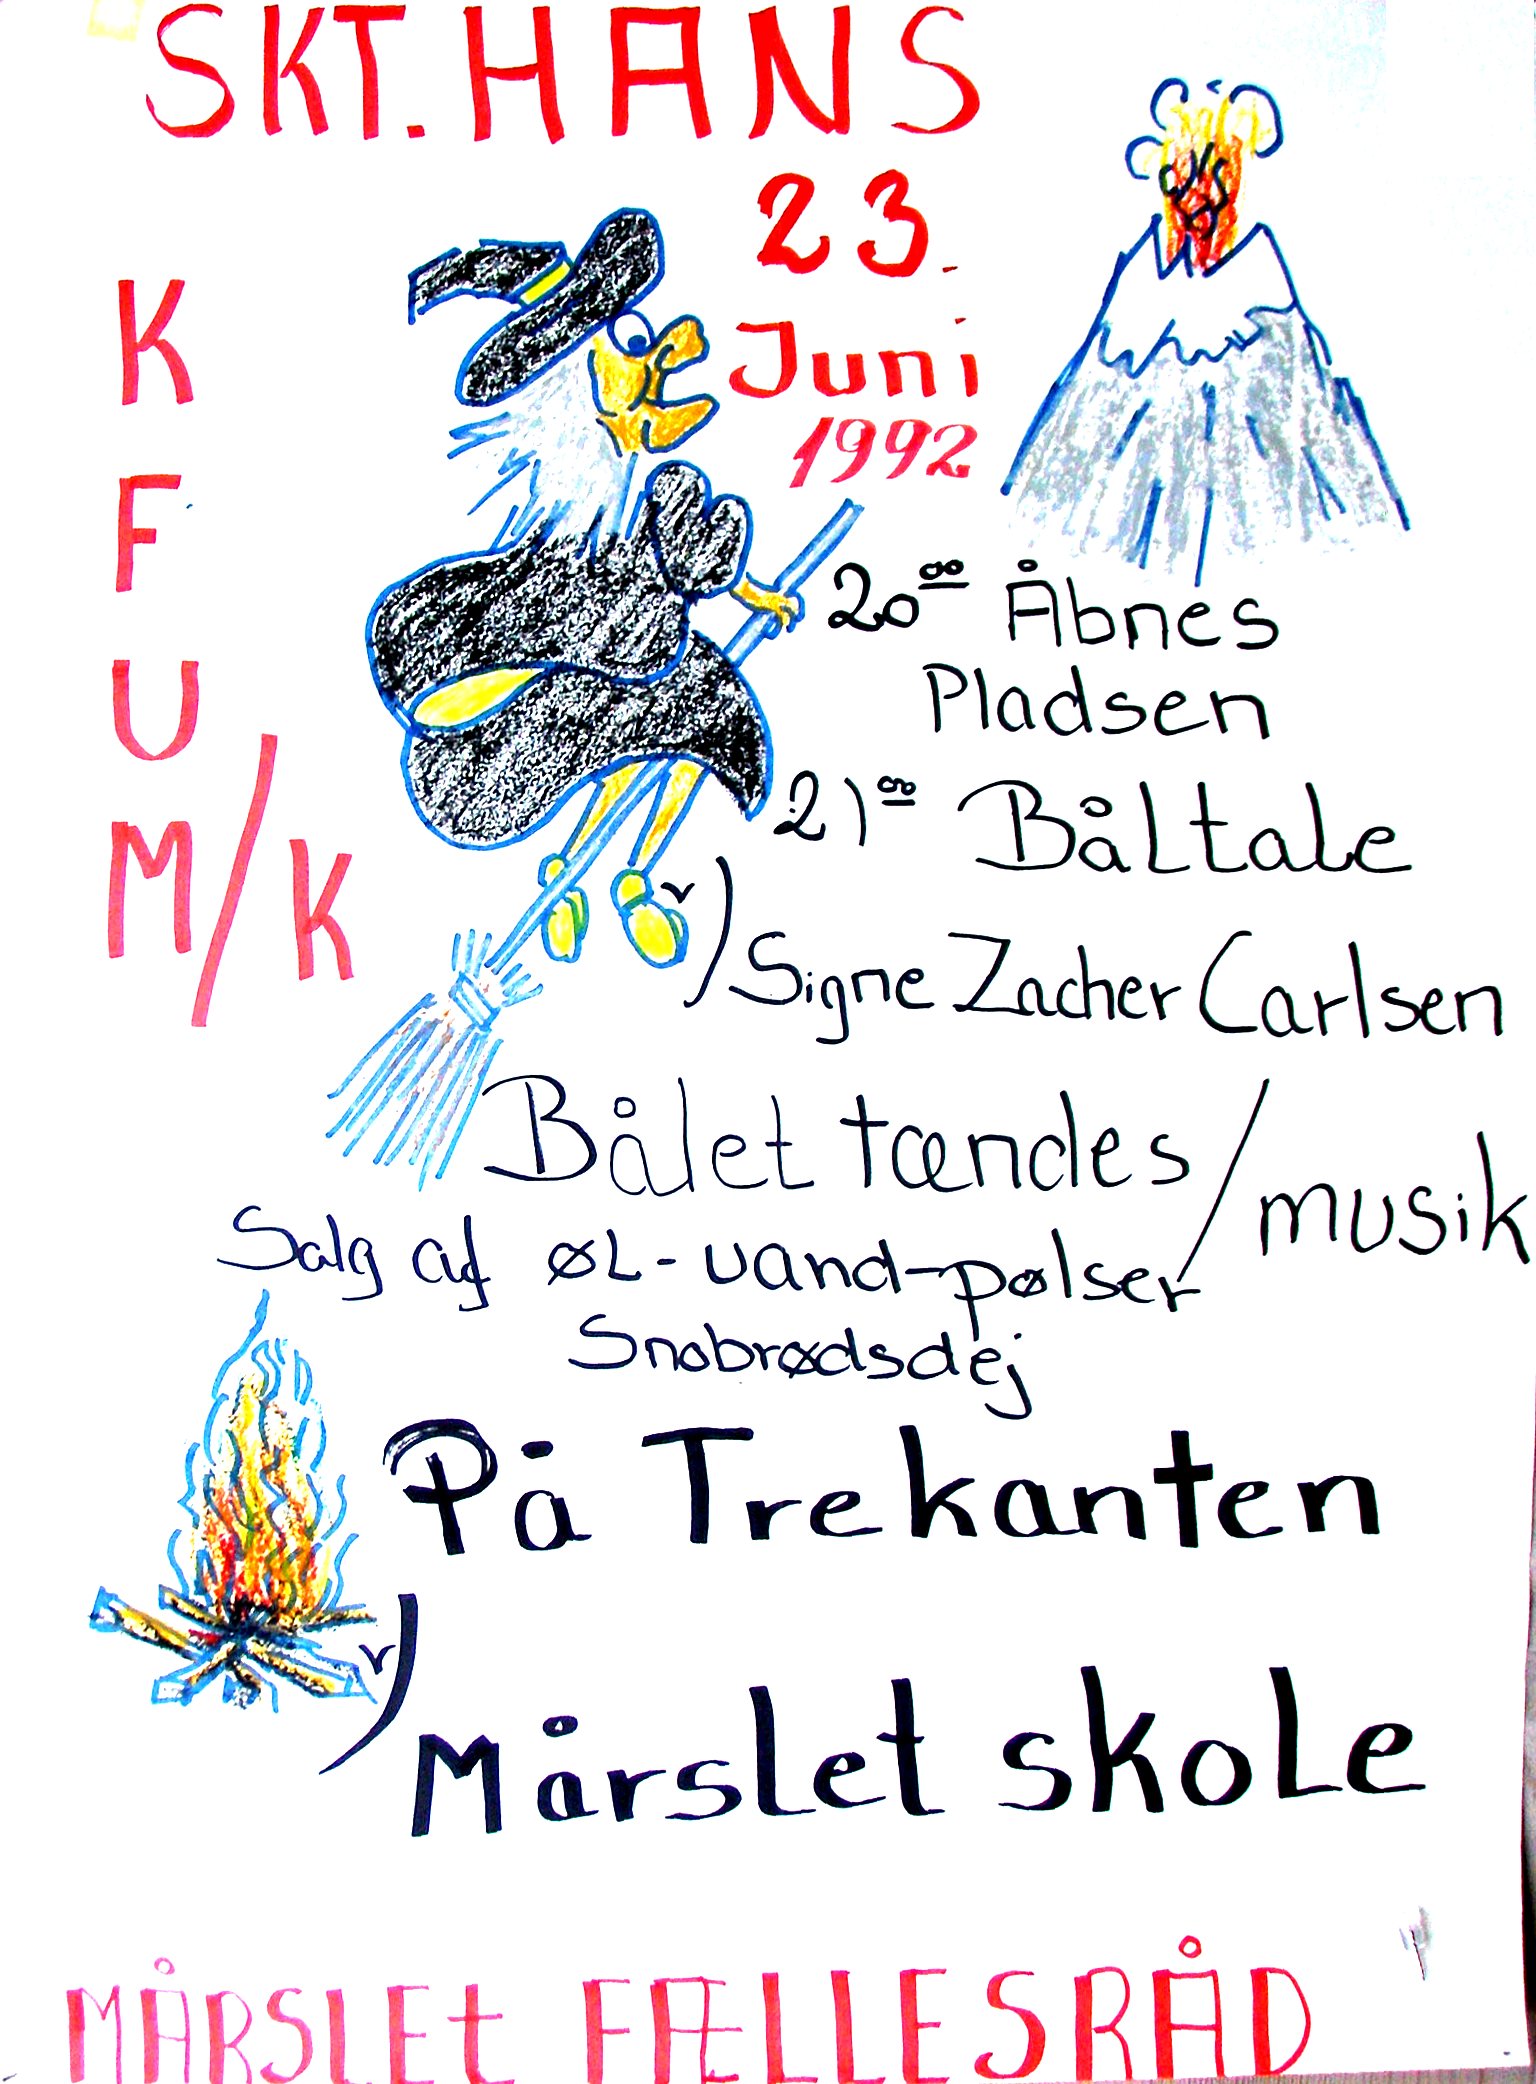 SKT. HANS
23.
Juni
1992
K
F
U
M/K
20⁰⁰ Åbnes
Pladsen
21⁰⁰ Båltale
v/ Signe Zacher Carlsen
Bålet tændes / musik
Salg af øl-vand-pølser
Snobrødsdej
På Trekanten
v/ Mårslet skole
MÅRSLEt FÆLLESRÅD